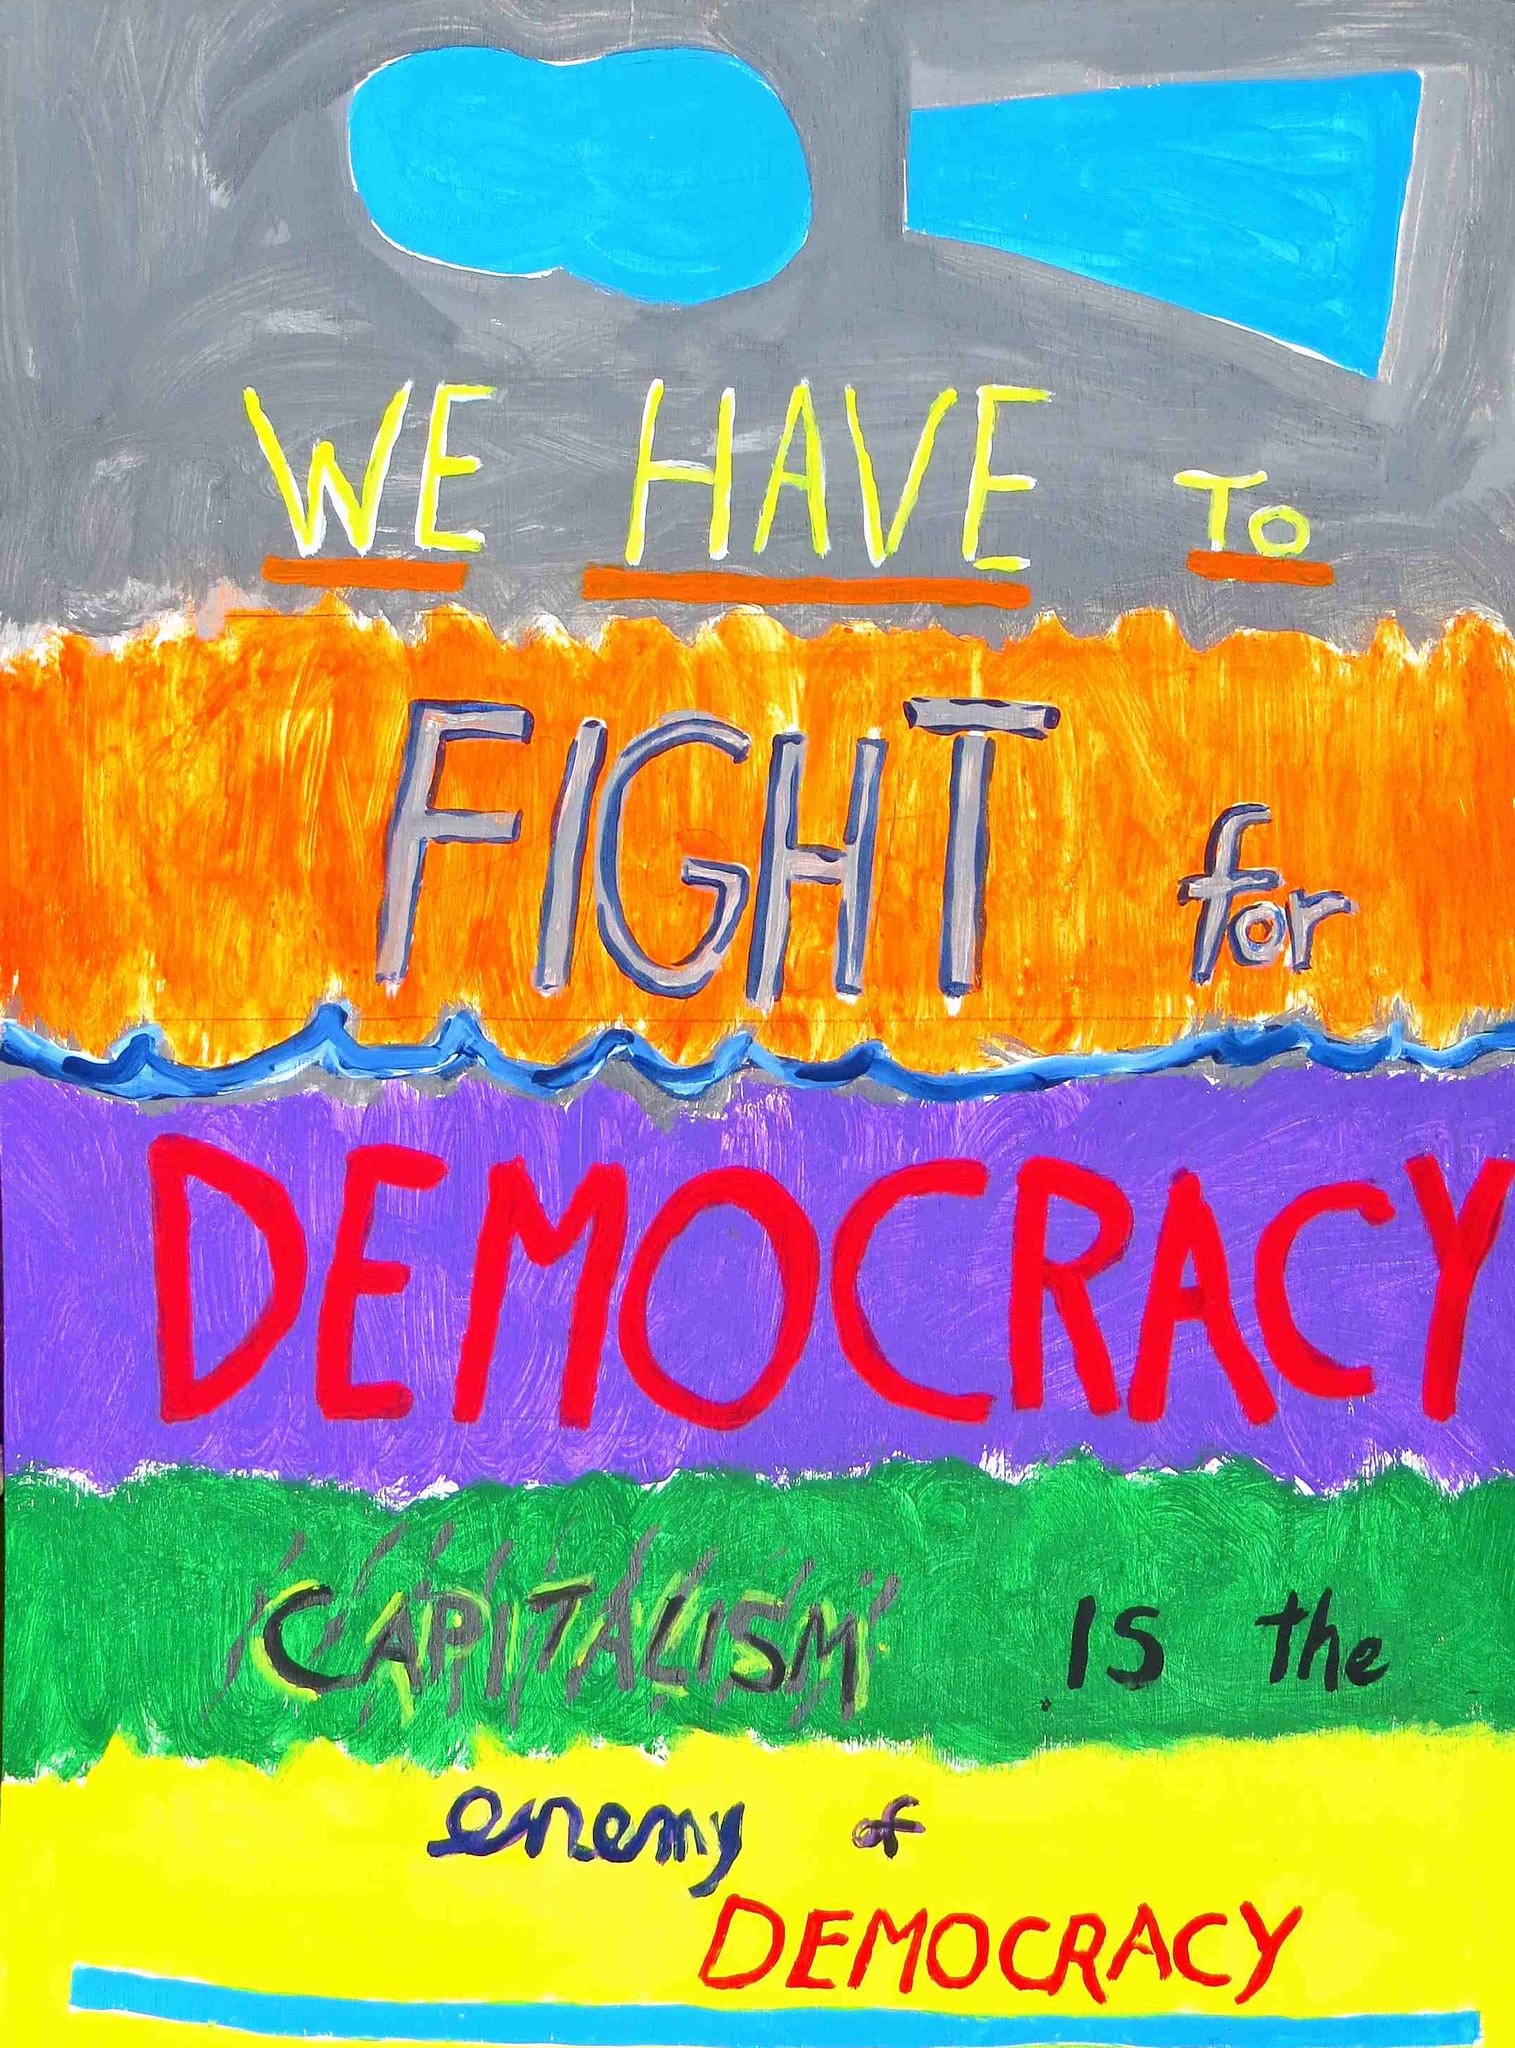 WE HAVE TO
FIGHT for
DEMOCRACY
CAPITALISM IS the
enemy of
DEMOCRACY